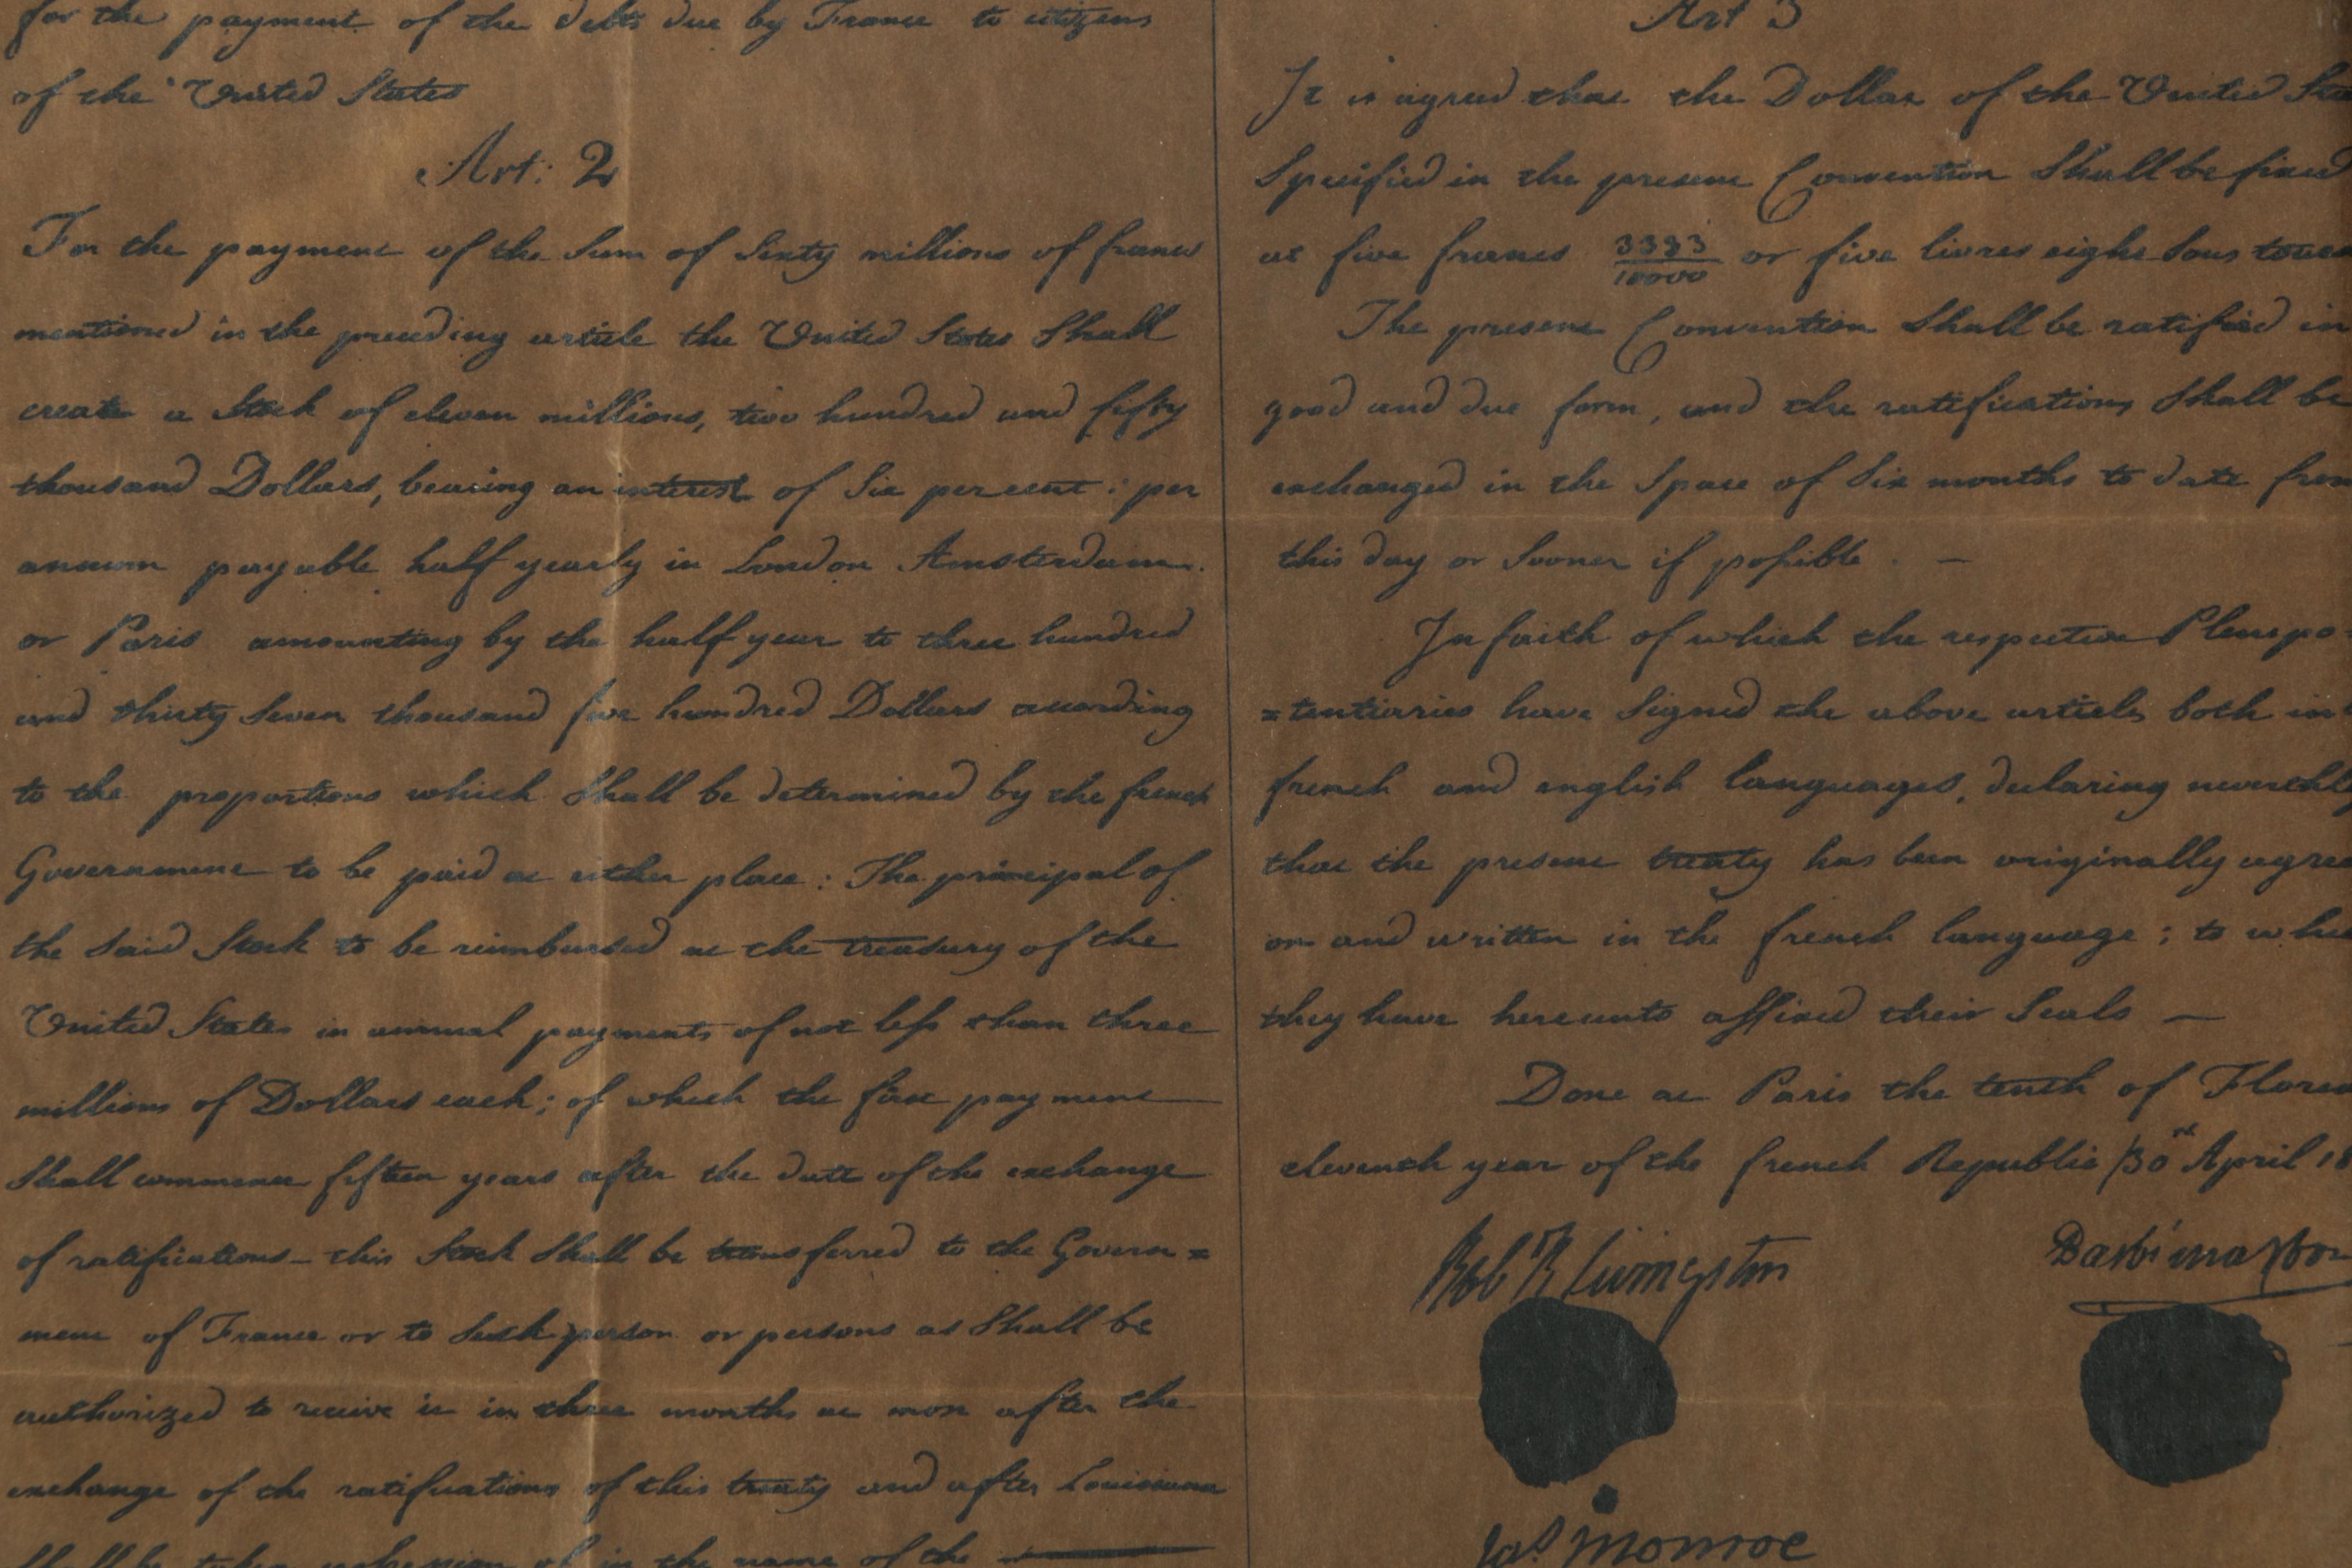 for the payment of the debts due by France to citizens
of the United States
Art: 2
For the payment of the Sum of Sixty millions of francs
mentioned in the preceding article the United States Shall
create a Stock of eleven millions, two hundred and fifty
thousand Dollars, bearing an interest of Six per cent: per
annum payable half yearly in London Amsterdam.
or Paris amounting by the half year to three hundred
and thirty Seven thousand five hundred Dollars according
to the proportions which Shall be determined by the french
Government to be paid at either place: The principal of
the Said Stock to be reimbursed at the treasury of the
United States in annual payments of not less than three
millions of Dollars each; of which the first payment
Shall commence fifteen years after the date of the exchange
of ratifications - this Stock Shall be transferred to the Govern=
ment of France or to Such person or persons as Shall be
authorized to receive it in three months at most after the
exchange of the ratifications of this treaty and after Louisiana
Shall be taken possession of in the name of the
Art 3
It is agreed that the Dollar of the United Sta
Specified in the present Convention Shall be fixed
at five francs 3333/10000 or five livres eight Sous tour
The present Convention Shall be ratified in
good and due form, and the ratifications Shall be
exchanged in the Space of Six months to date from
this day or Sooner if possible. —
In faith of which the respective Plenipo
=tentiaries have Signed the above articles both in
french and english languages, declaring neverthe
that the present treaty has been originally agree
on and written in the french language; to whic
they have hereunto affixed their Seals —
Done at Paris the tenth of Florea
eleventh year of the french Republic /30th April 18
Rob R Livingston
Barbé marbois
Jas Monroe